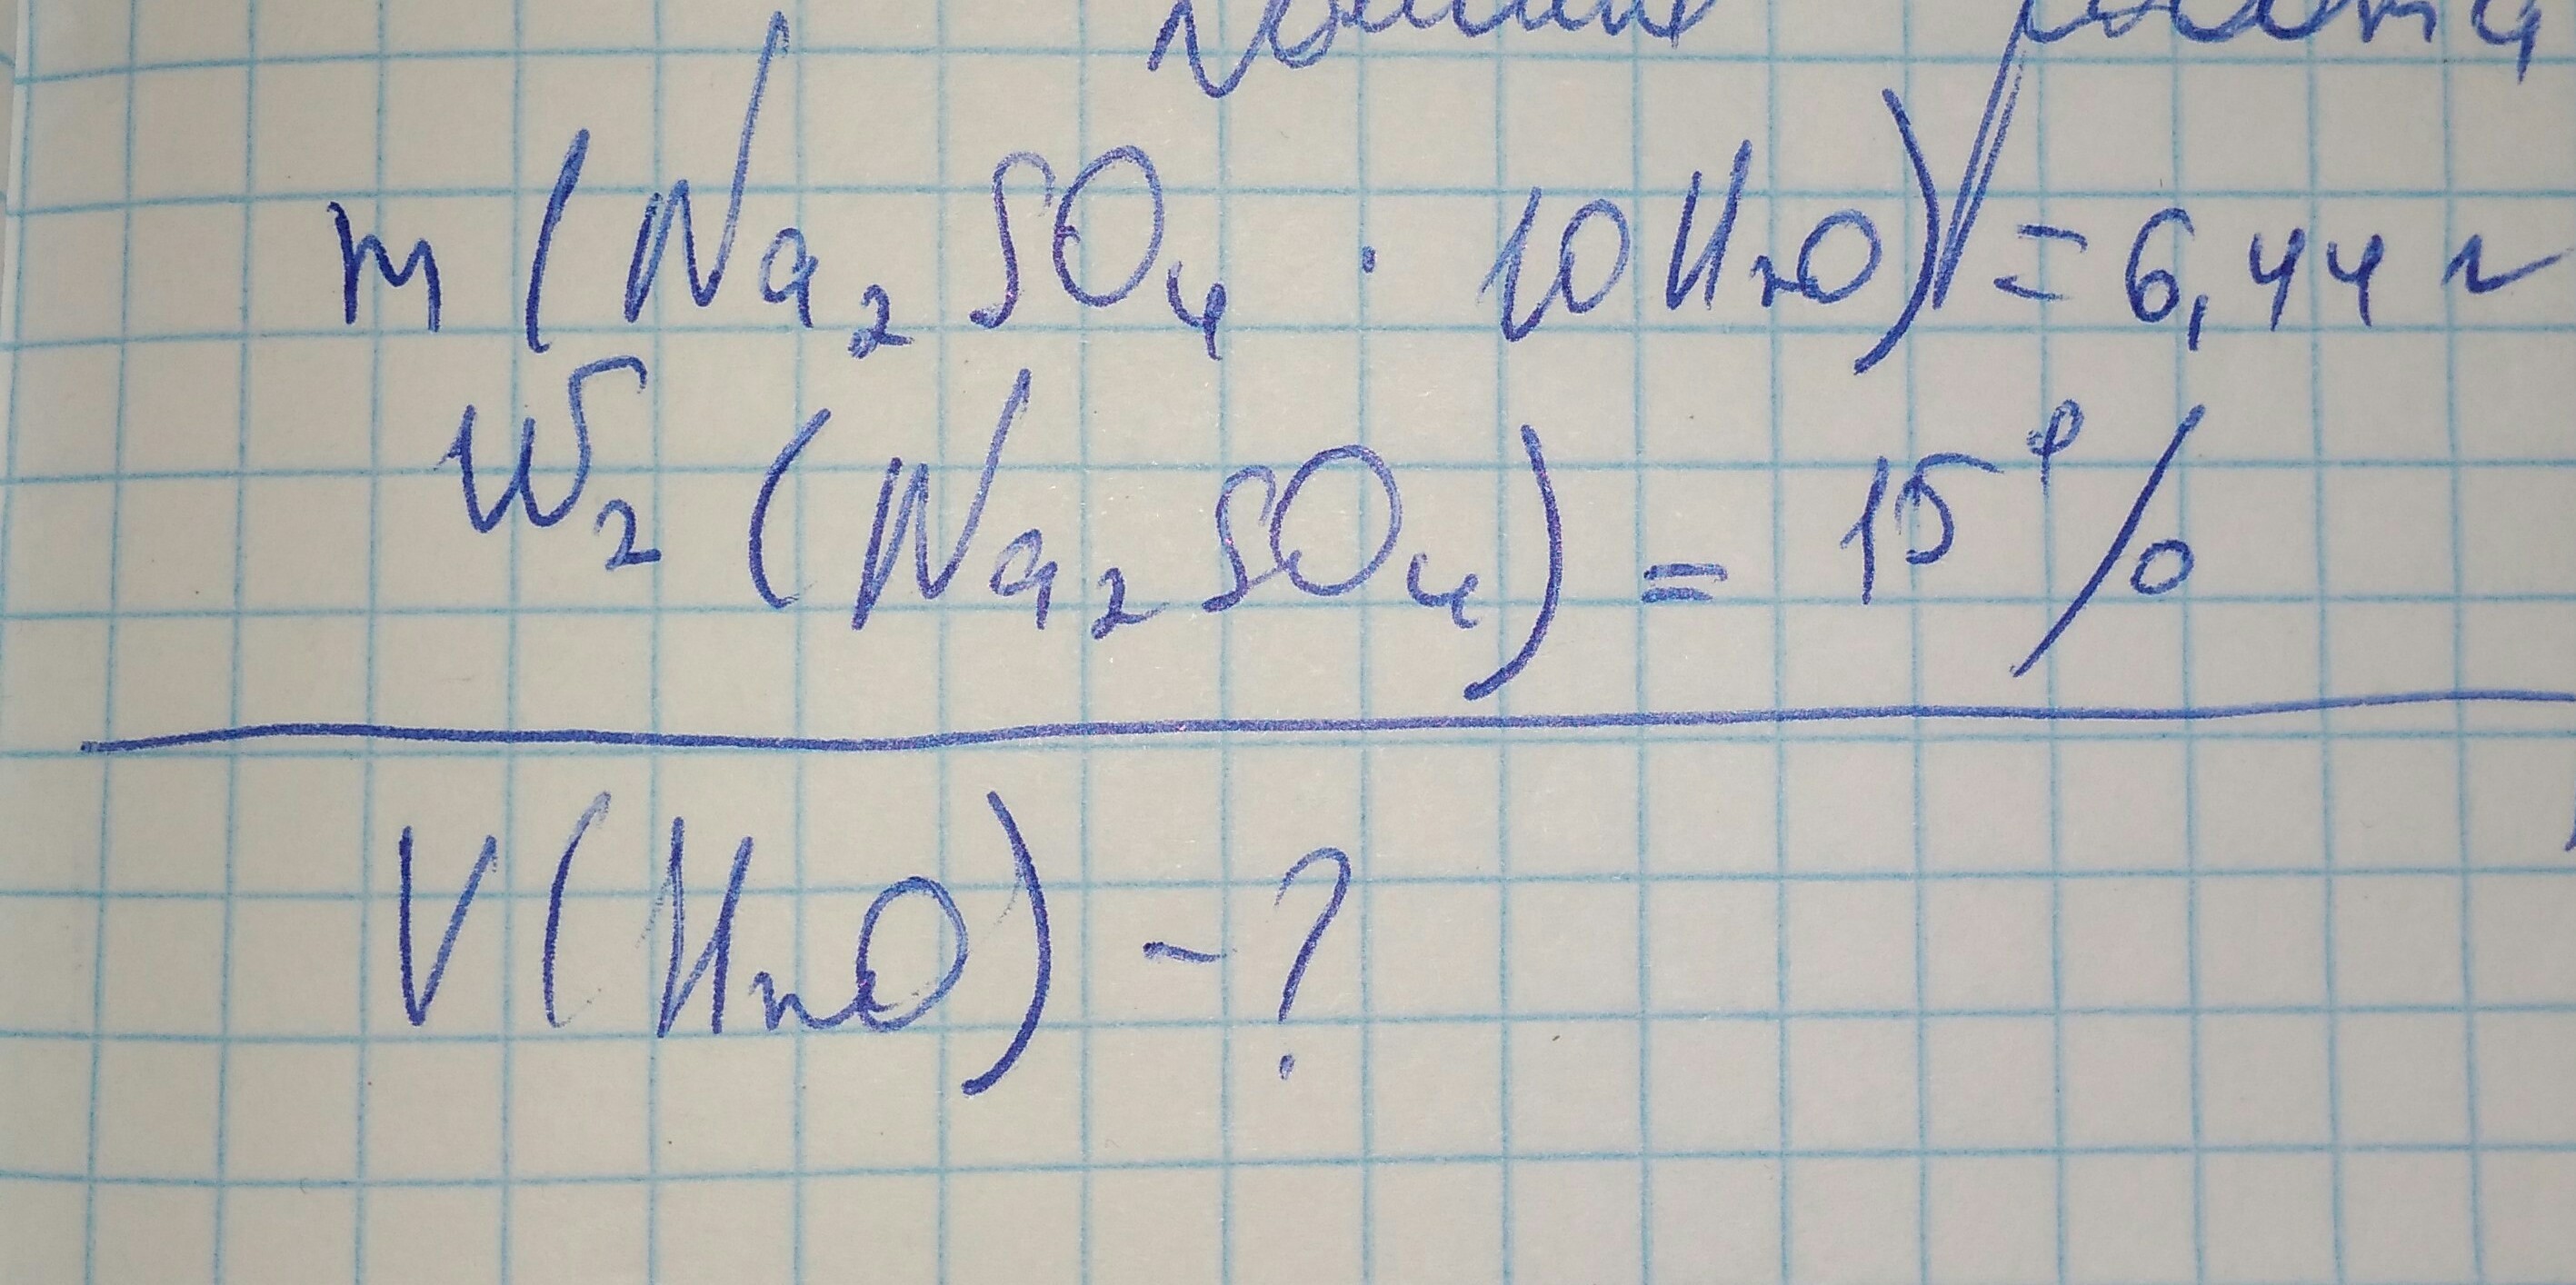 m (Na₂SO₄ · 10H₂O) = 6,44 г
W₂ (Na₂SO₄) = 15 %
V(H₂O) - ?